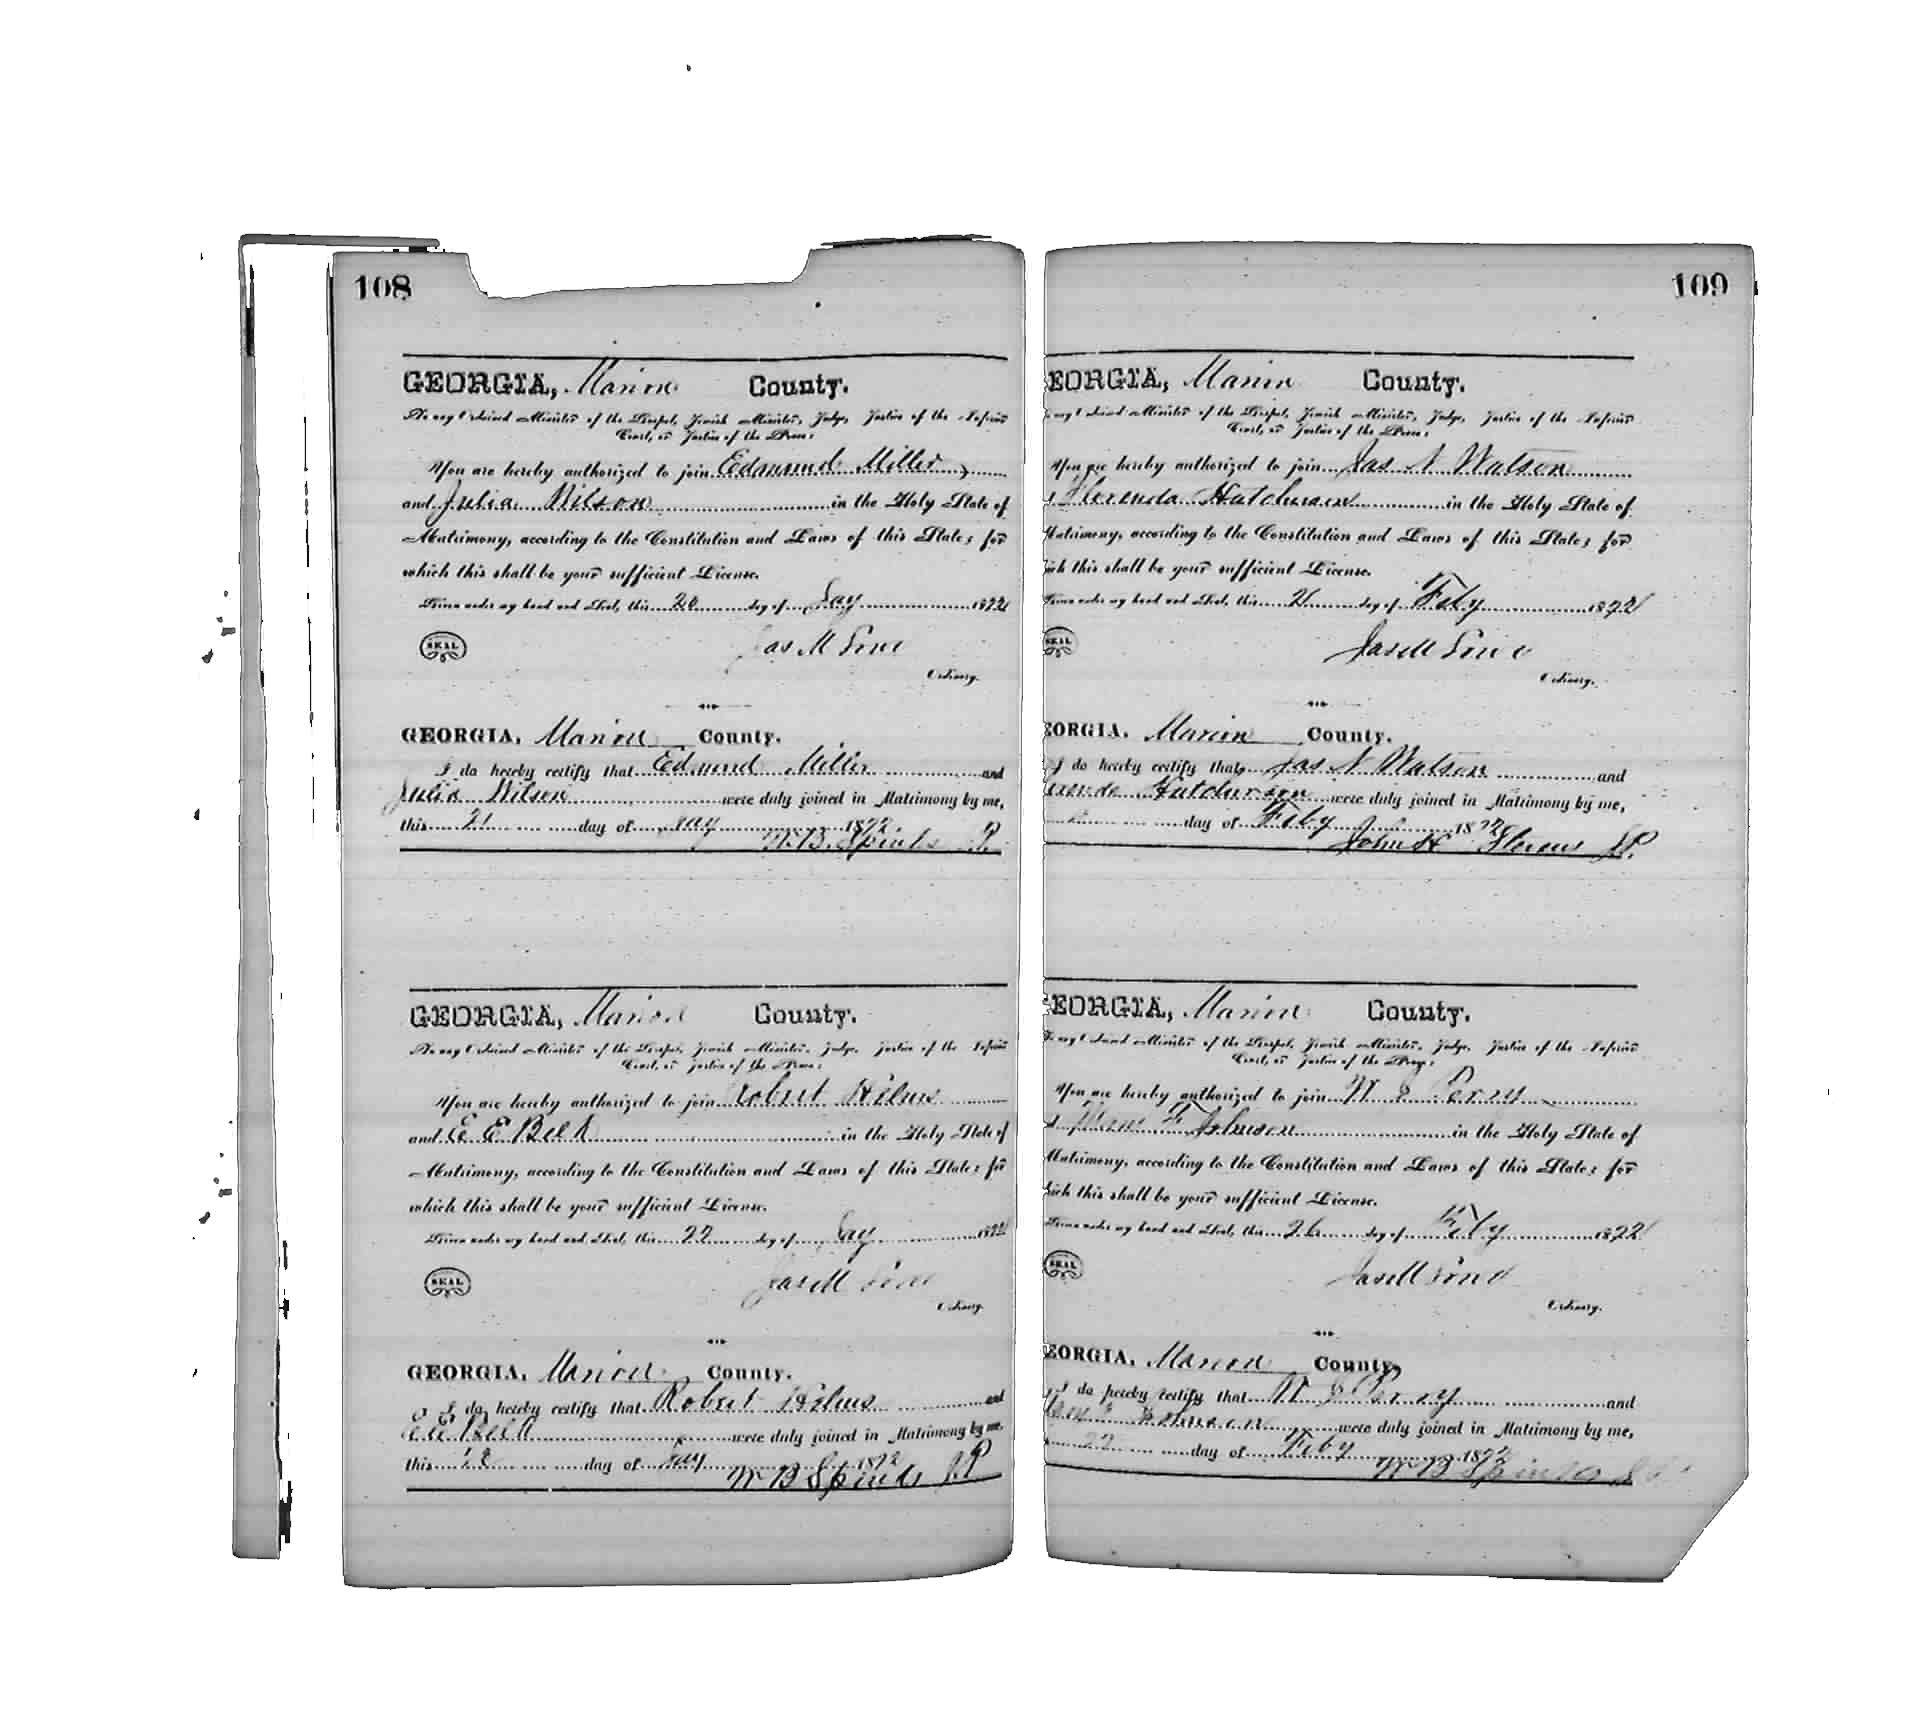 108
GEORGIA, Marion County.
To any Ordained Minister of the Gospel, Jewish Minister, Judge, Justice of the Inferior
Court, or Justice of the Peace:
You are hereby authorized to join Edmund Miller
and Julia Wilson in the Holy State of
Matrimony, according to the Constitution and Laws of this State; for
which this shall be your sufficient License.
Given under my hand and Seal, this 20 day of 1872
SEAL
Jas M Lowe
Ordinary.
GEORGIA, Marion County.
I do hereby certify that Edmund Miller and
Julia Wilson were duly joined in Matrimony by me,
this 21 day of 1872
W B Spinks J.P.
GEORGIA, Marion County.
To any Ordained Minister of the Gospel, Jewish Minister, Judge, Justice of the Inferior
Court, or Justice of the Peace:
You are hereby authorized to join Robert Helms
and E E Belk in the Holy State of
Matrimony, according to the Constitution and Laws of this State; for
which this shall be your sufficient License.
Given under my hand and Seal, this 22 day of 1872
SEAL
Jas M Lowe
Ordinary.
GEORGIA, Marion County.
I do hereby certify that Robert Helms and
E E Belk were duly joined in Matrimony by me,
this day of 1872
W B Spinks JP
109
EORGIA, Marion County.
any Ordained Minister of the Gospel, Jewish Minister, Judge, Justice of the Inferior
Court, or Justice of the Peace:
You are hereby authorized to join Jas N Watson
Florenda Hutchinson in the Holy State of
Matrimony, according to the Constitution and Laws of this State; for
which this shall be your sufficient License.
Given under my hand and Seal, this 21 day of Feby 1872
SEAL
Jas M Lowe
Ordinary.
EORGIA, Marion County.
I do hereby certify that Jas N Watson and
Hutchinson were duly joined in Matrimony by me,
day of Feby 1872
John H Stevens JP.
GEORGIA, Marion County.
To any Ordained Minister of the Gospel, Jewish Minister, Judge, Justice of the Inferior
Court, or Justice of the Peace:
You are hereby authorized to join W J Perry
F Johnson in the Holy State of
Matrimony, according to the Constitution and Laws of this State; for
which this shall be your sufficient License.
Given under my hand and Seal, this 26 day of Feby 1872
SEAL
Jas M Lowe
Ordinary.
EORGIA, Marion County.
I do hereby certify that W J Perry and
Johnson were duly joined in Matrimony by me,
27 day of Feby 1872
W B Spinks J P